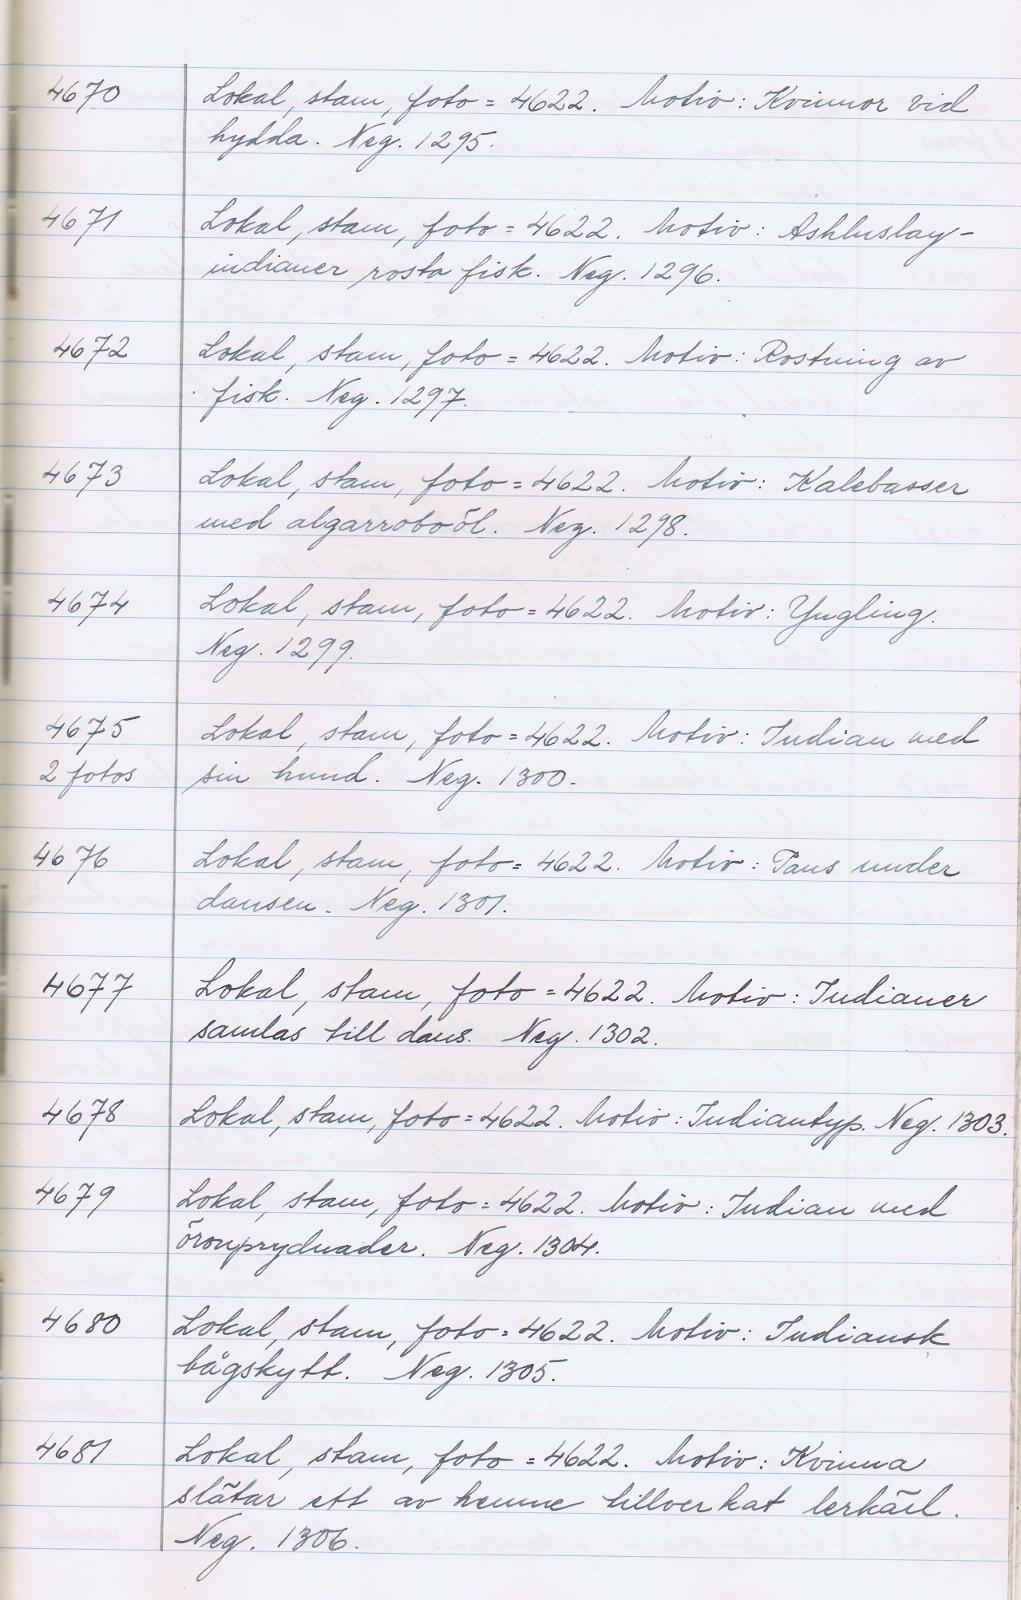 4670 Lokal, stam, foto = 4622. Motiv: Kvinnor vid
hydda. Neg. 1295.
4671 Lokal, stam, foto = 4622. Motiv: Ashluslay-
indianer rosta fisk. Neg. 1296.
4672 Lokal, stam, foto = 4622. Motiv: Rostning av
fisk. Neg. 1297.
4673 Lokal, stam, foto = 4622. Motiv: Kalebasser
med algarroboöl. Neg. 1298.
4674 Lokal, stam, foto = 4622. Motiv: Yngling.
Neg. 1299.
4675 Lokal, stam, foto = 4622. Motiv: Indian med
2 fotos sin hund. Neg. 1300.
4676 Lokal, stam, foto = 4622. Motiv: Paus under
dansen. Neg. 1301.
4677 Lokal, stam, foto = 4622. Motiv: Indianer
samlas till dans. Neg. 1302.
4678 Lokal, stam, foto = 4622. Motiv: Indiantyp. Neg. 1303.
4679 Lokal, stam, foto = 4622. Motiv: Indian med
öronprydnader. Neg. 1304.
4680 Lokal, stam, foto = 4622. Motiv: Indiansk
bågskytt. Neg. 1305.
4681 Lokal, stam, foto = 4622. Motiv: Kvinna
slätar ett av henne tillverkat lerkärl.
Neg. 1306.